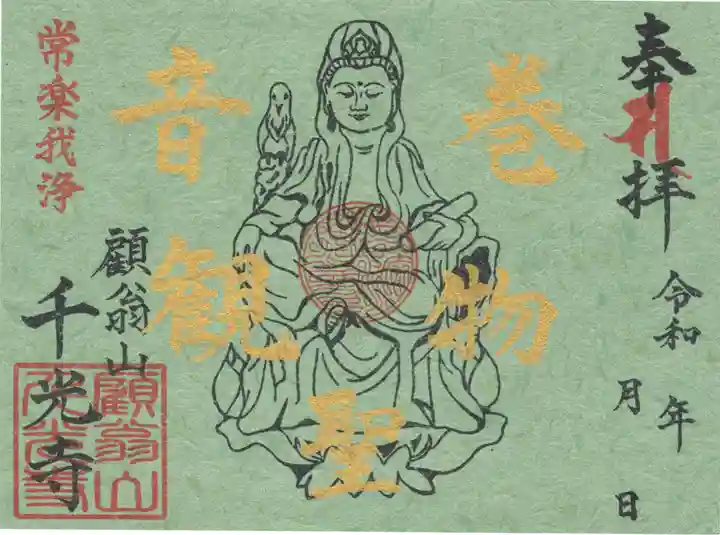 奉拝
令和　年
月　日
巻物聖観音
常楽我浄
顧翁山
千光寺
顧翁山